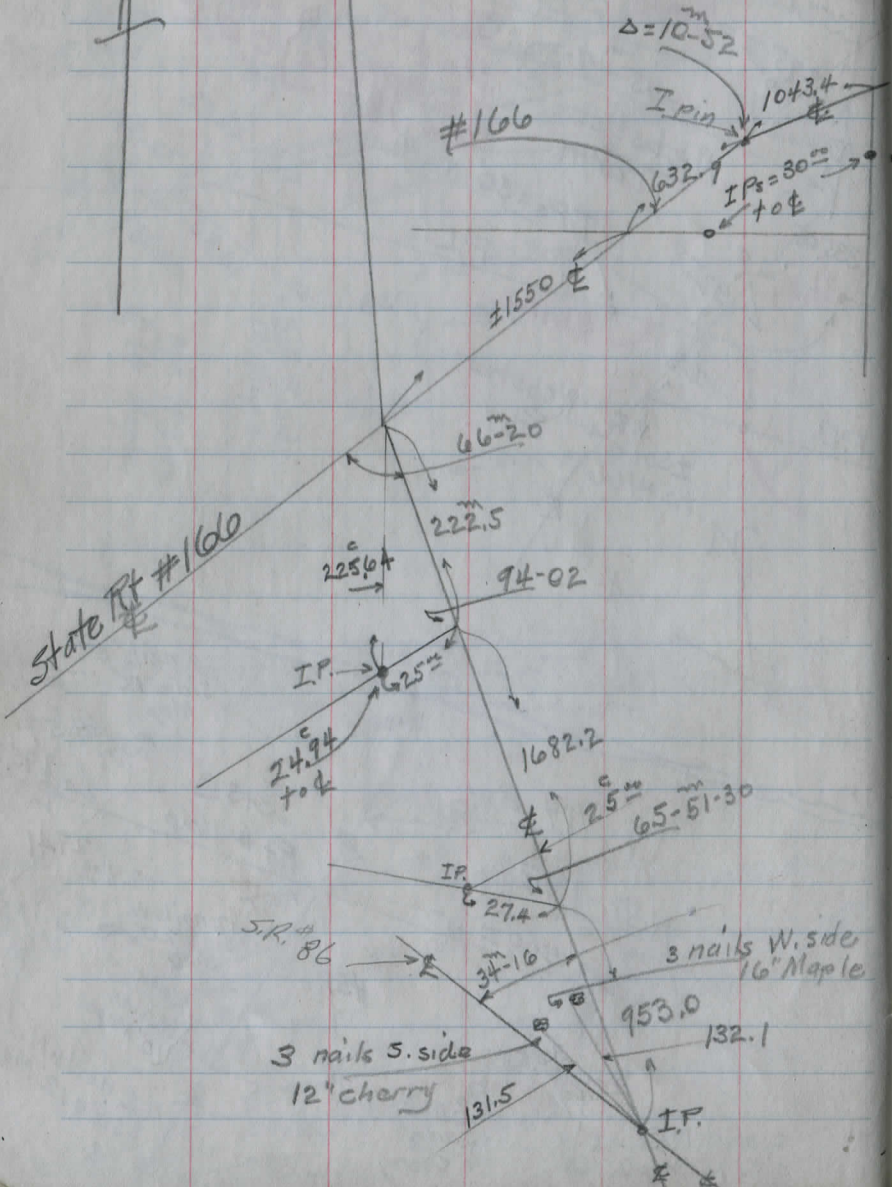 Δ=10-52
m
1043.4
℄
I pin
#166
632.9
IPs=30 00
to ℄
±1550 ℄
66-20
m
222.5
m
State Rt #166
℄
225.64
c
94-02
I.P.
25 00
24.94
c
to ℄
1682.2
℄
25 00
c
65-51-30
m
I.P.
27.4
S.R. #
86
℄
34-16
m
3 nails W. side
16" Maple
953.0
132.1
3 nails S. side
12" cherry
131.5
I.P.
℄